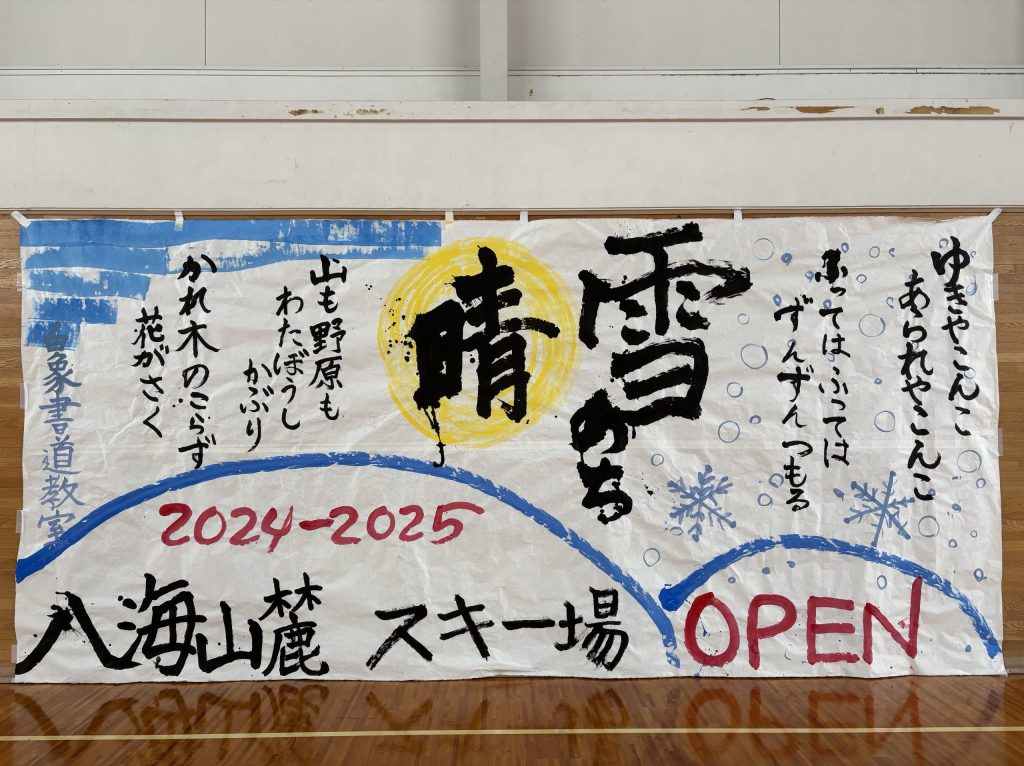 ゆきやこんこ
あられやこんこ
ふってはふっては
ずんずんつもる
雪のち
晴
山も野原も
わたぼうし
かぶり
かれ木のこらず
花がさく
白象書道教室
2024-2025
八海山麓 スキー場
OPEN